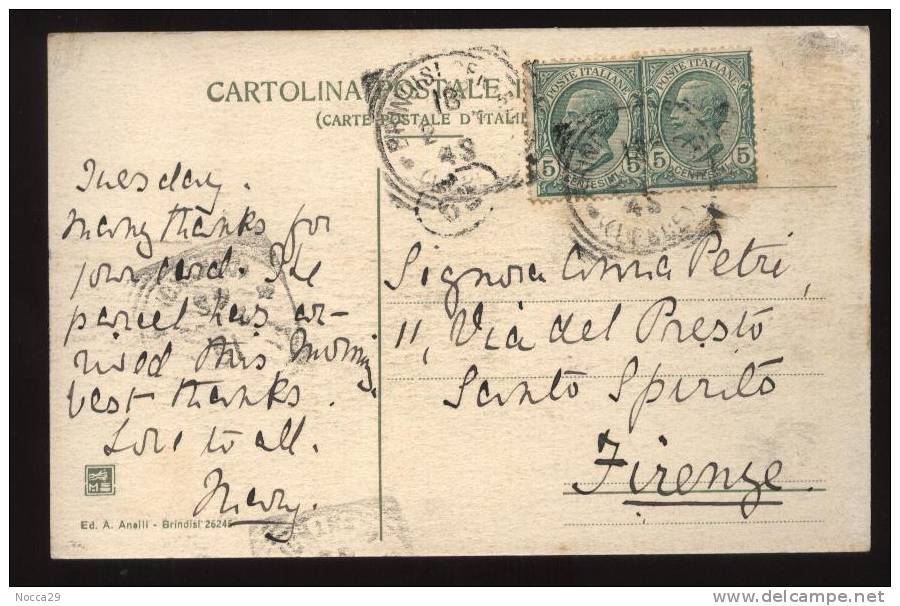 CARTOLINA POSTALE
(CARTE POSTALE D'ITALI
POSTE ITALIANE
POSTE ITALIANE
5 CENTESIMI 5
5 CENTESIMI 5
BRINDISI
(LECCE)
Tuesday.
Many thanks for
your card. The
parcel has ar-
rived this morning,
best thanks.
Love to all.
Mary.
Signora Anna Petri,
11, Via del Presto
Santo Spirito
Firenze
Ed. A. Anelli - Brindisi 26245
Nocca29
http://www.delcampe.net